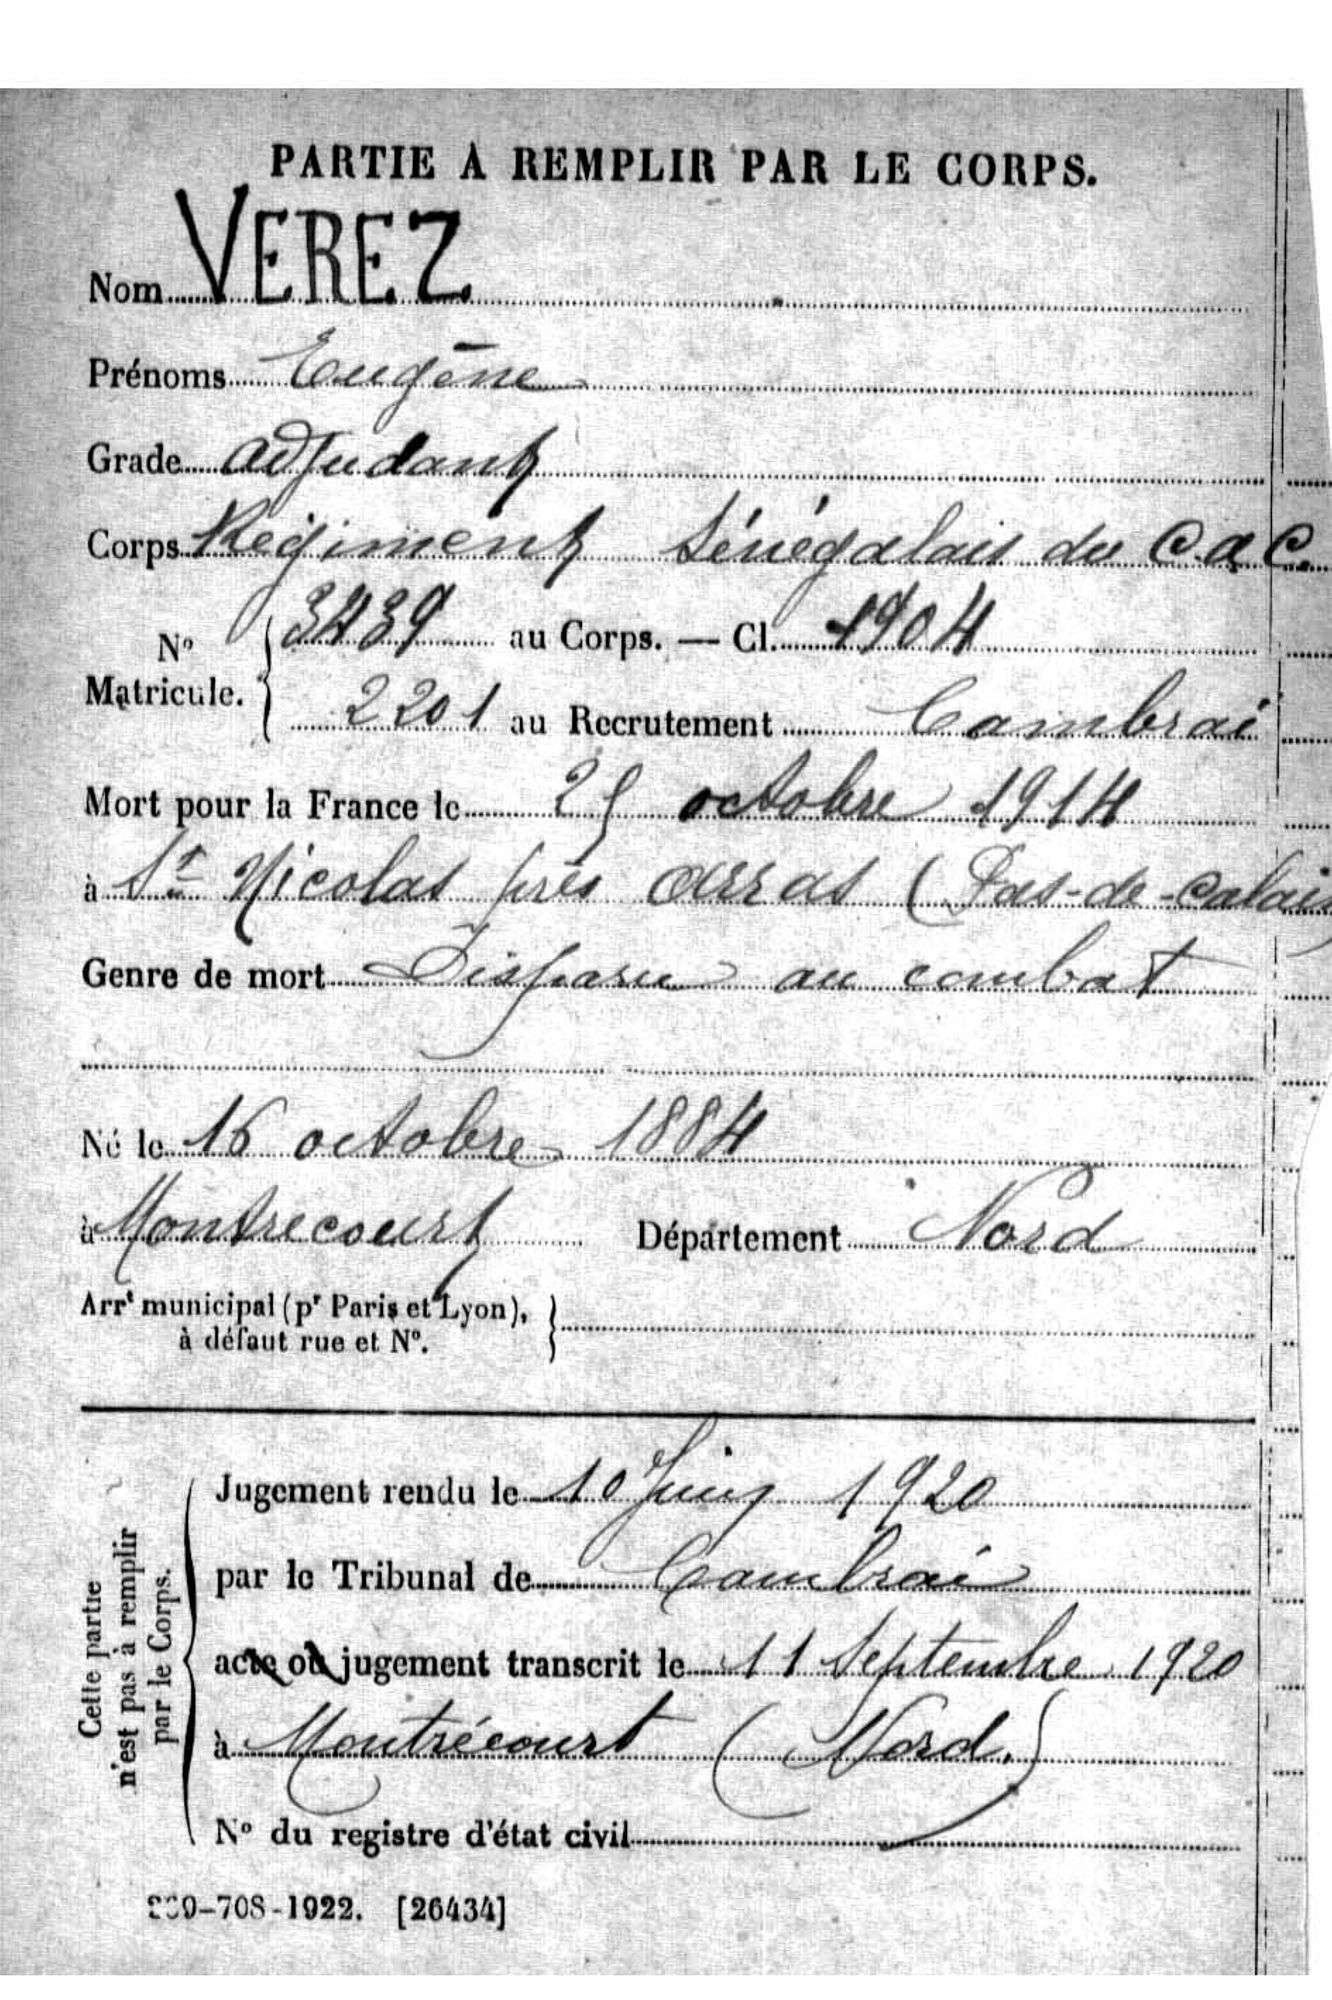 PARTIE À REMPLIR PAR LE CORPS.
Nom VEREZ
Prénoms Eugène
Grade adjudant
Corps Régiment Sénégalais du C.a.C.
N° Matricule. { 3439 au Corps. — Cl. 1904
2201 au Recrutement Cambrai
Mort pour la France le 25 octobre 1914
à St Nicolas près Arras (Pas-de-Calais)
Genre de mort Disparu au combat
Né le 16 octobre 1884
à Montrecourt Département Nord
Arrt municipal (pr Paris et Lyon), }
à défaut rue et N°.
Cette partie
n'est pas à remplir
par le Corps.
Jugement rendu le 10 Juin 1920
par le Tribunal de Cambrai
acte ou jugement transcrit le 11 Septembre 1920
à Montrécourt (Nord.)
N° du registre d'état civil
-708-1922. [26434]